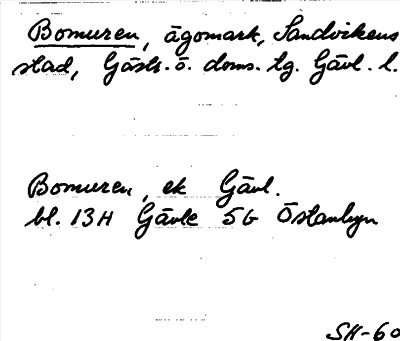 Bomuren, ägomark, Sandvikens
stad, Gästr. ö. doms. tg. Gävl. l.
Bomuren, ek Gävl.
bl. 13H Gävle 5G Östanbyn
SH-60